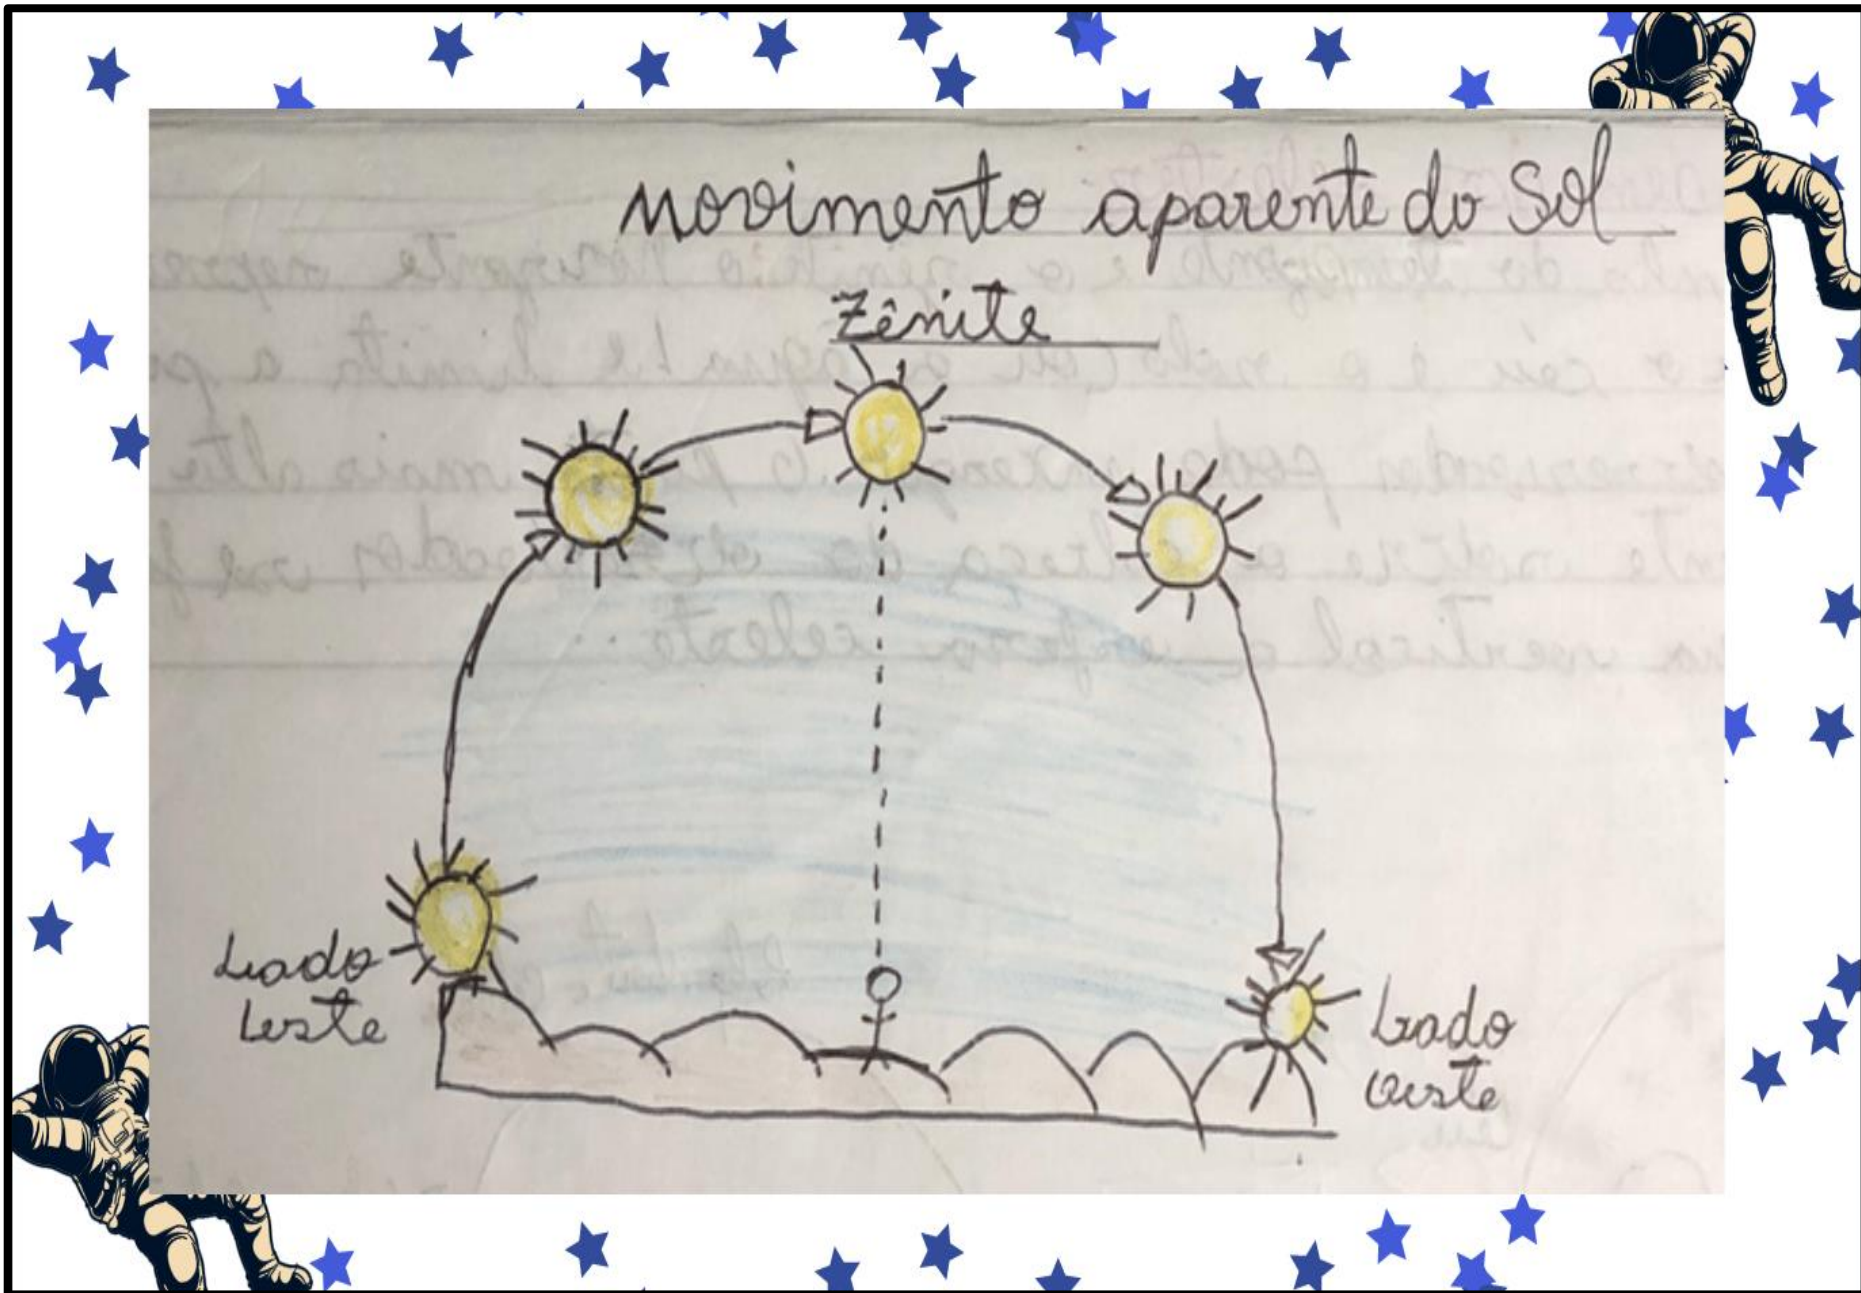 Movimento aparente do Sol
Zênite
Lado
Leste
Lado
Oeste